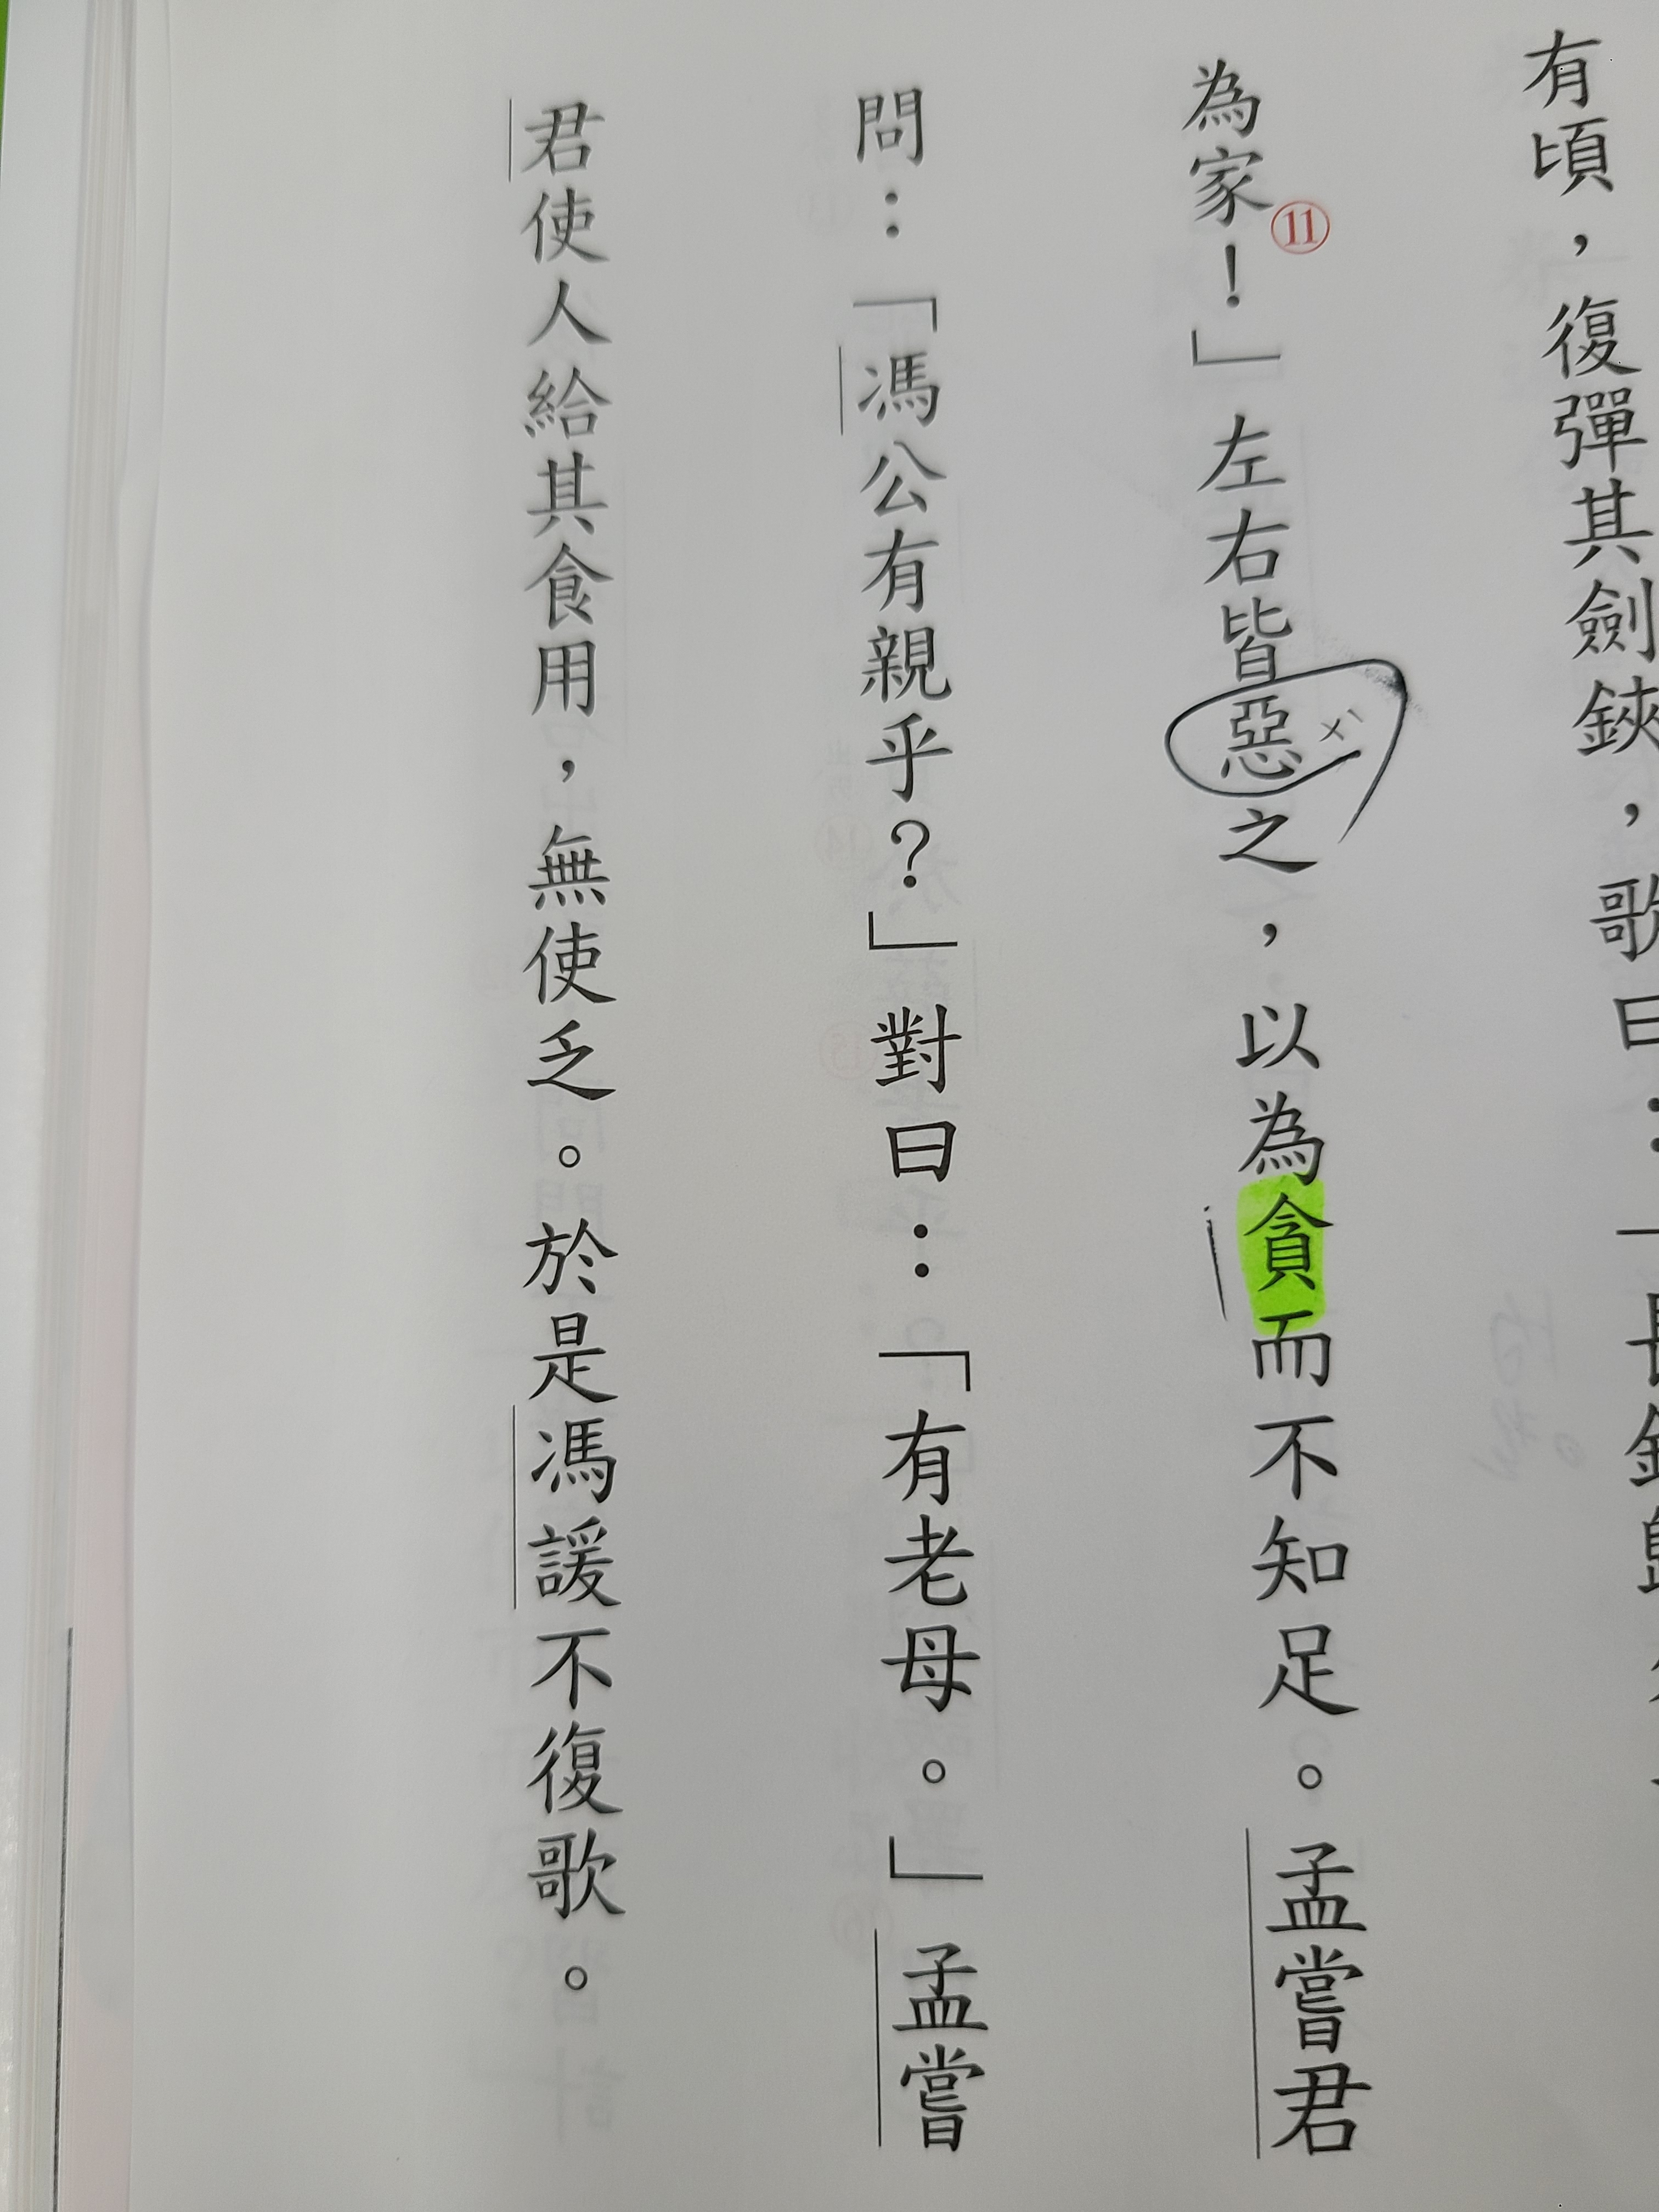 有頃，復彈其劍鋏，歌曰：「長鋏歸
為家！」⑪左右皆惡之，以為貪而不知足。孟嘗君
ㄨˋ
問：「馮公有親乎？」對曰：「有老母。」孟嘗
君使人給其食用，無使乏。於是馮諼不復歌。